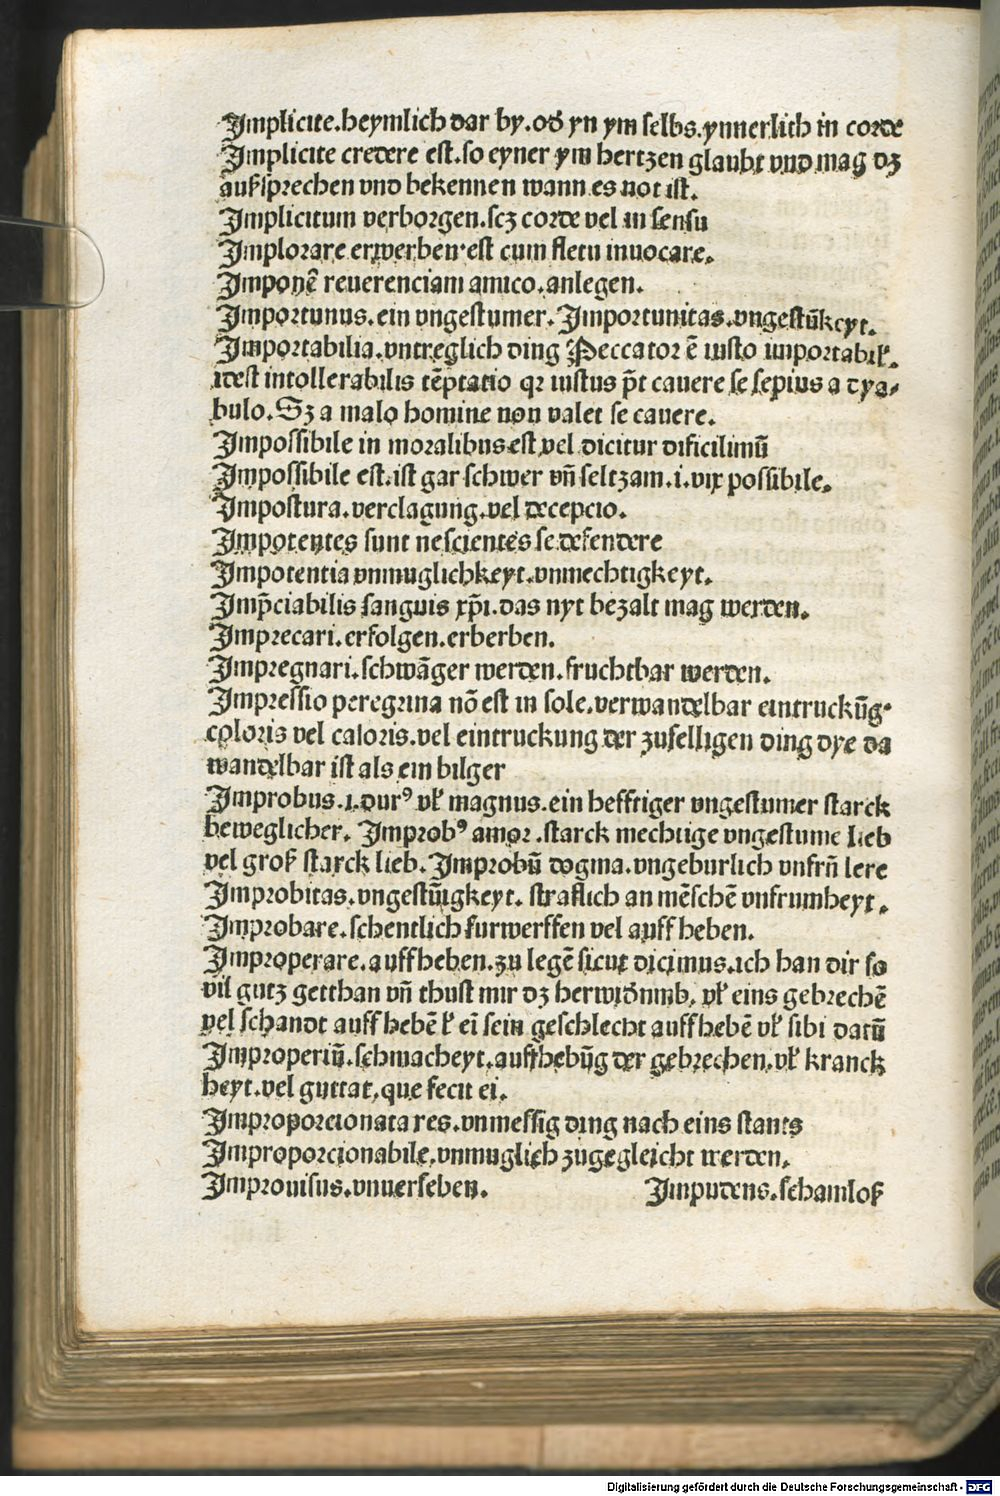 Implicite.heymlich dar by.od̕ yn ym selbs.ynnerlich in corde
Implicite credere est.so eyner ym hertzen glaubt vnd mag dz
außsprechen vnd bekennen wann es not ist.
Implicitum verborgen.scz corde vel in sensu
Implorare erwerben·est cum fletu inuocare.
Imponẽ reuerenciam amico.anlegen.
Importunus.ein vngestumer.Importunitas.vngestũkeyt.
Importabilia.vntreglich ding Peccator ẽ iusto importabil̕.
idest intollerabilis tẽptatio qꝛ iustus p̃t cauere se sepius a dya⸗
bulo.Sz a malo homine non valet se cauere.
Impossibile in moralibus est vel dicitur dificilimũ
Impossibile est.ist gar schwer vñ seltzam.i.vix possibile.
Impostura.verclagung.vel decepcio.
Impotentes sunt nescientes se defendere
Impotentia vnmuglichkeyt.vnmechtigkeyt.
Imp̃ciabilis sanguis xp̃i.das nyt bezalt mag werden.
Imprecari.erfolgen.erberben.
Impregnari.schwãger werden.fruchtbar werden.
Impressio peregrina nõ est in sole.verwandelbar eintruckũg·
coloris vel caloris.vel eintruckung der zufelligen ding dye da
wandelbar ist als ein bilger
Improbus.i.durꝰ vl̕ magnus.ein hefftiger vngestumer starck
beweglicher. Improbꝰ amor.starck mechtige vngestume lieb
vel groß starck lieb. Improbũ dogma.vngeburlich vnfrñ lere
Improbitas.vngestũigkeyt. straflich an mẽschẽ vnfrumheyt.
Improbare.schentlich furwerffen vel auffheben.
Improperare.auffheben.zu legẽ sicut dicimus.ich han dir so
vil gutz getthan vñ thust mir dz herwid̕umb. vl̕ eins gebrechẽ
vel schandt auffhebẽ l̕ eĩ sein geschlecht auffhebẽ vl̕ sibi datũ
Improperiũ.schmacheyt.auffhebũg der gebrechen.vl̕ kranck
heyt.vel guttat.que fecit ei.
Improporcionata res.vnmessig ding nach eins stants
Improporcionabile.vnmuglich zugegleicht werden.
Improuisus.vnuersehen. Impudens.schamloß
Digitalisierung gefördert durch die Deutsche Forschungsgemeinschaft - DFG